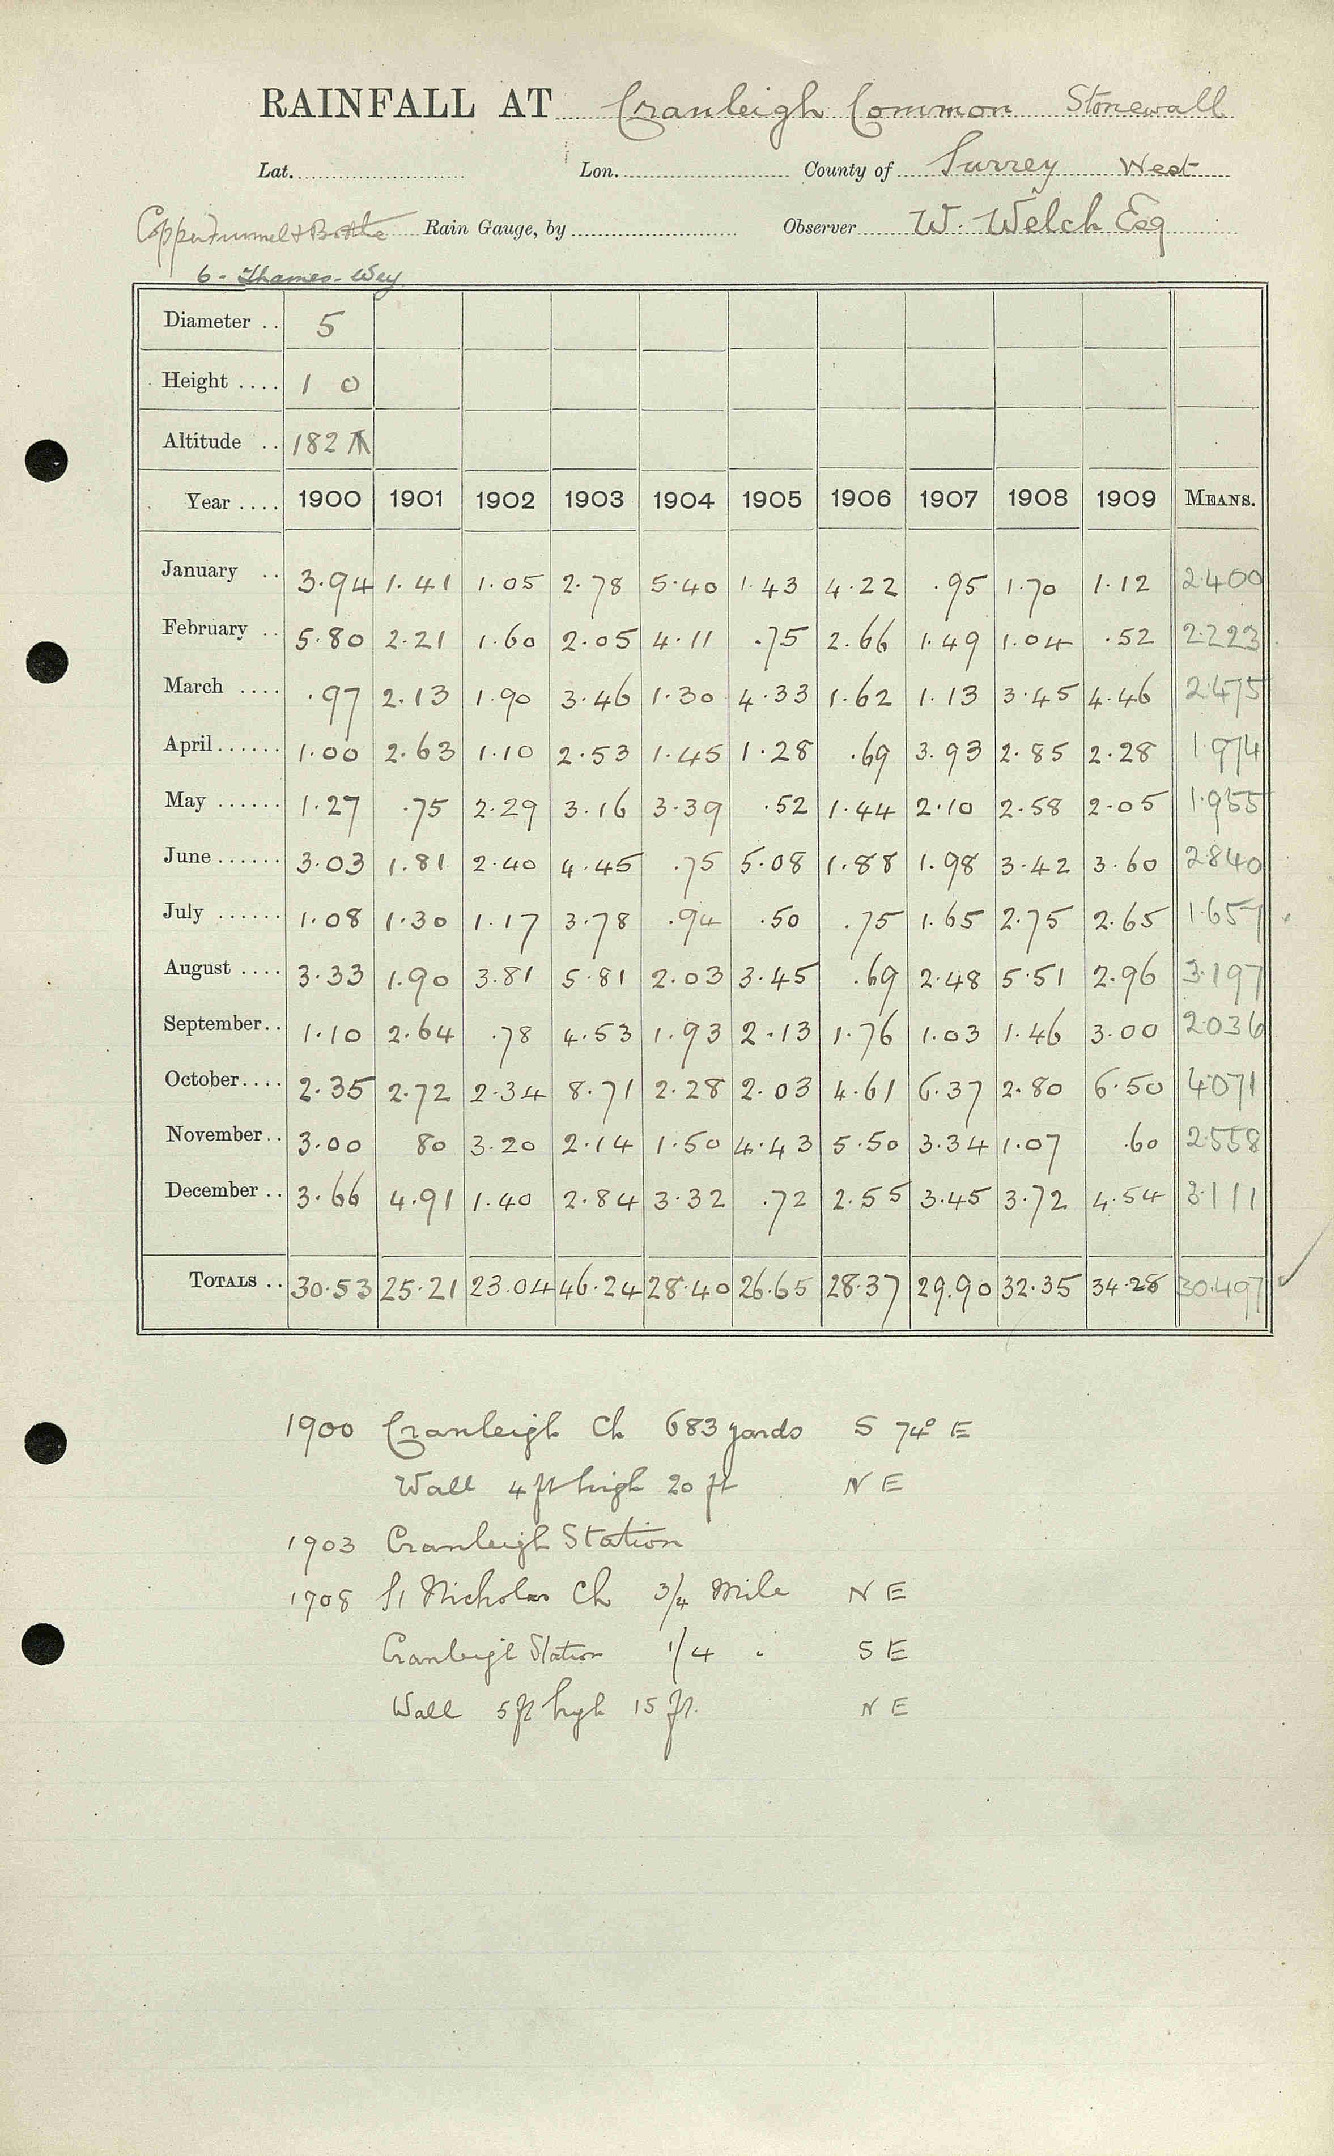 RAINFALL AT Cranleigh Common Stonewall
Lat. Lon. County of Surrey West
Copper Funnel & Bottle Rain Gauge, by Observer W. Welch Esq
6 - Thames - Wey
Diameter .. 5
Height .... 1 0
Altitude .. 182
Year .... 1900 1901 1902 1903 1904 1905 1906 1907 1908 1909 MEANS.
January .. 3.94 1.41 1.05 2.78 5.40 1.43 4.22 .95 1.70 1.12 2.400
February .. 5.80 2.21 1.60 2.05 4.11 .75 2.66 1.49 1.04 .52 2.223
March .... .97 2.13 1.90 3.46 1.30 4.33 1.62 1.13 3.45 4.46 2.475
April ...... 1.00 2.63 1.10 2.53 1.45 1.28 .69 3.93 2.85 2.28 1.974
May ...... 1.27 .75 2.29 3.16 3.39 .52 1.44 2.10 2.58 2.05 1.955
June ...... 3.03 1.81 2.40 4.45 .75 5.08 1.88 1.98 3.42 3.60 2.840
July ...... 1.08 1.30 1.17 3.78 .94 .50 .75 1.65 2.75 2.65 1.657
August .... 3.33 1.90 3.81 5.81 2.03 3.45 .69 2.48 5.51 2.96 3.197
September.. 1.10 2.64 .78 4.53 1.93 2.13 1.76 1.03 1.46 3.00 2.036
October.... 2.35 2.72 2.34 8.71 2.28 2.03 4.61 6.37 2.80 6.50 4.071
November.. 3.00 80 3.20 2.14 1.50 4.43 5.50 3.34 1.07 .60 2.558
December .. 3.66 4.91 1.40 2.84 3.32 .72 2.55 3.45 3.72 4.54 3.111
TOTALS .. 30.53 25.21 23.04 46.24 28.40 26.65 28.37 29.90 32.35 34.28 30.497 ✓
1900 Cranleigh Ch 683 yards S 74° E
Wall 4 ft high 20 ft N E
1903 Cranleigh Station
1908 St Nicholas Ch 3/4 Mile N E
Cranleigh Station 1/4 " S E
Wall 5 ft high 15 ft. N E